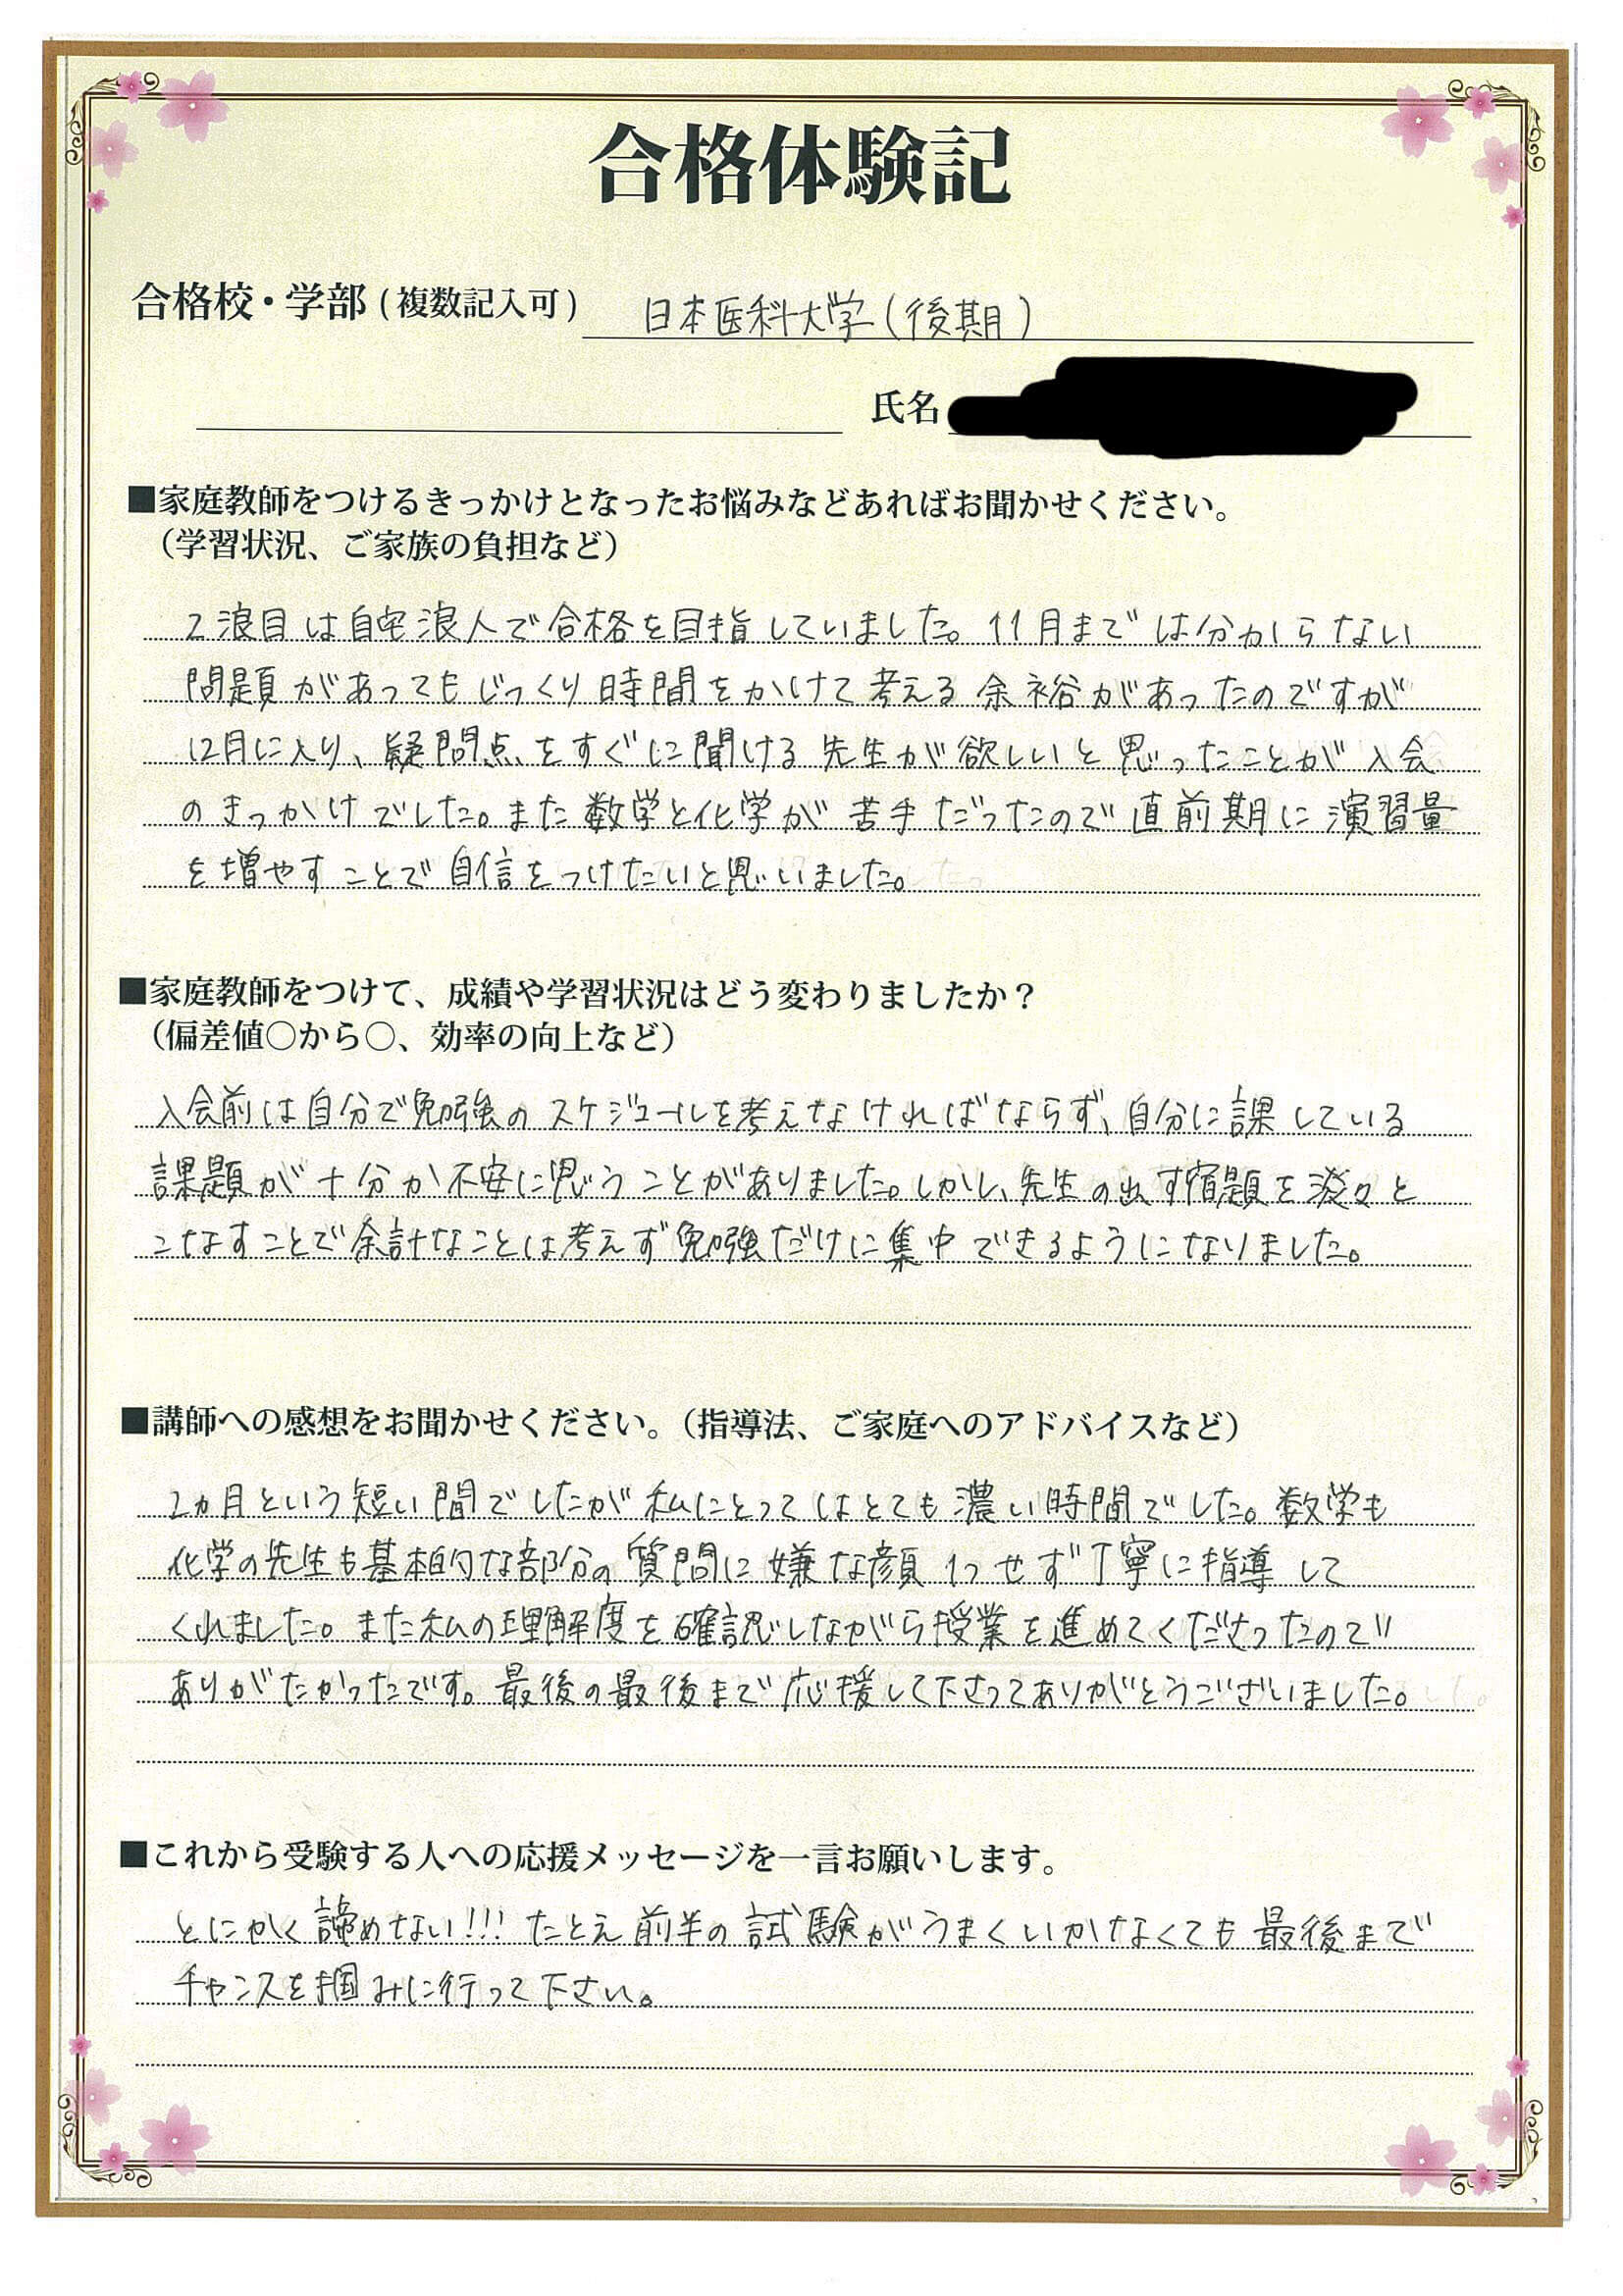 合格体験記
合格校・学部(複数記入可) 日本医科大学(後期)
氏名
■家庭教師をつけるきっかけとなったお悩みなどあればお聞かせください。
(学習状況、ご家族の負担など)
2浪目は自宅浪人で合格を目指していました。11月までは分からない
問題があってもじっくり時間をかけて考える余裕があったのですが
12月に入り、疑問点をすぐに聞ける先生が欲しいと思ったことが入会
のきっかけでした。また数学と化学が苦手だったので直前期に演習量
を増やすことで自信をつけたいと思いました。
■家庭教師をつけて、成績や学習状況はどう変わりましたか?
(偏差値○から○、効率の向上など)
入会前は自分で勉強のスケジュールを考えなければならず、自分に課している
課題が十分か不安に思うことがありました。しかし、先生の出す宿題を淡々と
こなすことで余計なことは考えず勉強だけに集中できるようになりました。
■講師への感想をお聞かせください。(指導法、ご家庭へのアドバイスなど)
2ヵ月という短い間でしたが私にとってはとても濃い時間でした。数学も
化学の先生も基本的な部分の質問に嫌な顔1つせず丁寧に指導して
くれました。また私の理解度を確認しながら授業を進めてくださったので
ありがたかったです。最後の最後まで応援して下さってありがとうございました。
■これから受験する人への応援メッセージを一言お願いします。
とにかく諦めない!!!たとえ前半の試験がうまくいかなくても最後まで
チャンスを掴みに行って下さい。